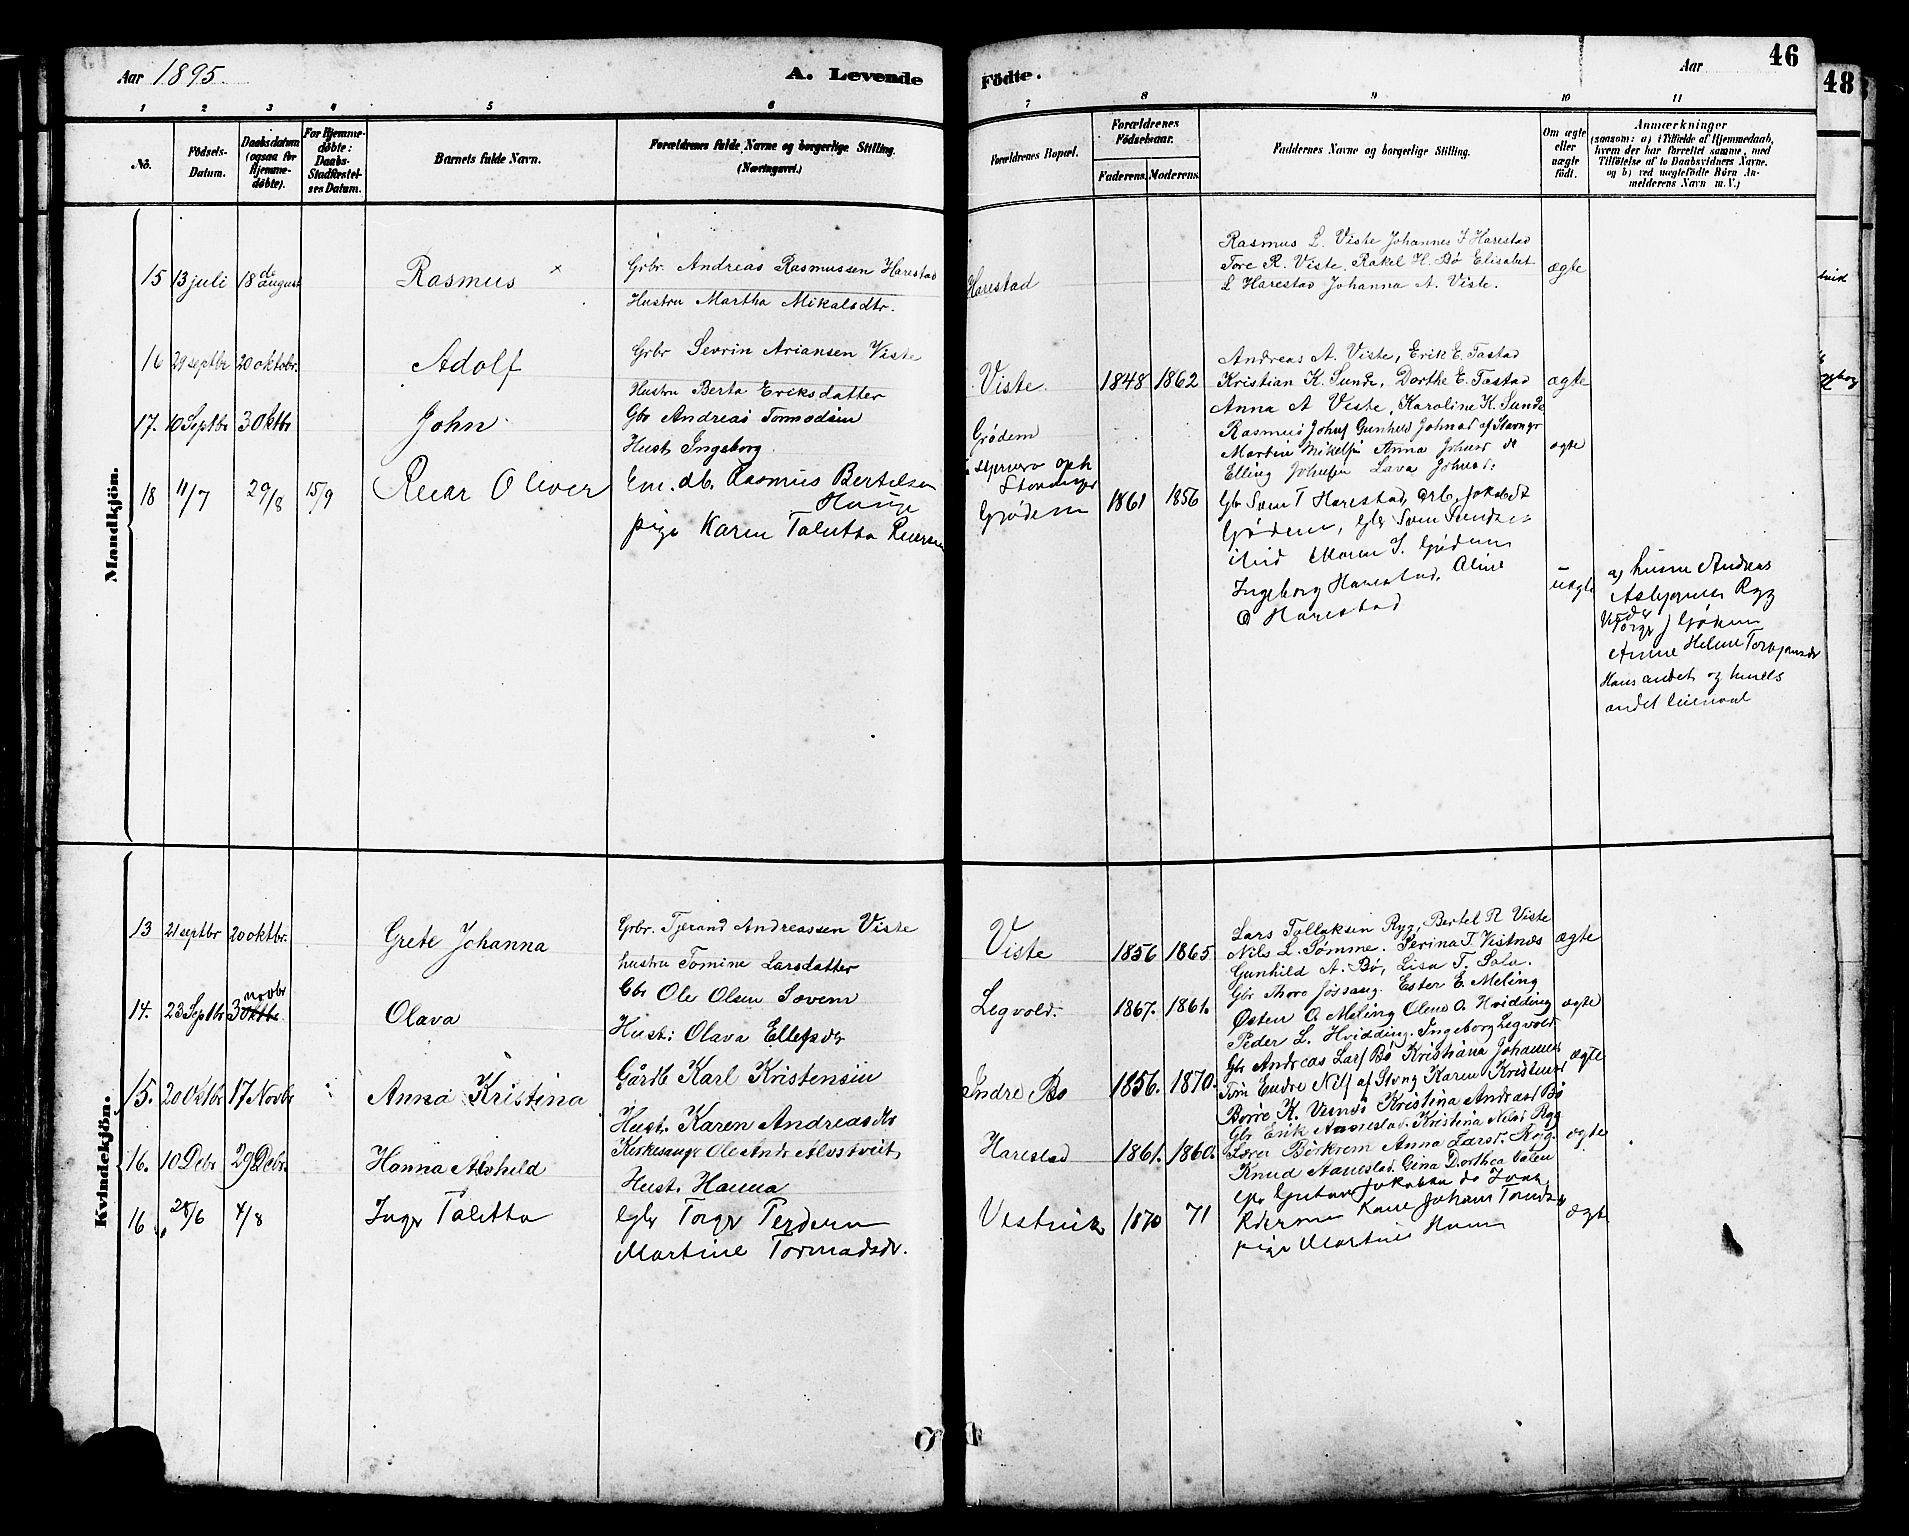 Aar 1895. A. Levende Födte. Aar 46
48
1 2 3 4 5 6 7 8 9 10 11
Nô.
Födsels-
Datum.
Daabsdatum
(ogsaa for
Hjemme-
døbte).
For Hjemme-
døbte:
Daabs-
Stadfæstel-
ses Datum.
Barnets fulde Navn.
Forældrenes fulde Navne og borgerlige Stilling.
(Næringsvei.)
Forældrenes Bopæl.
Forældrenes
Födselsaar.
Faderens. Moderens.
Faddernes Navne og borgerlige Stilling.
Om ægte
eller
uægte
födt.
Anmærkninger
(saasom: a) i Tilfælde af Hjemmedaab,
hvem der har forrettet samme, med
Tilföielse af to Daabsvidners Navne.
og b) ved uægtefödte Börn An-
melderens Navn m. V.)
Mandkjön.
15 13 juli 18 de august Rasmus ×
Grbr. Andreas Rasmussen Harestad
Hustru Martha Mikalsdtr.
Harestad
Rasmus L. Viste Johannes J Harestad
Tore R. Viste. Rakel H. Bö Elisabet
L Harestad Johanna A. Viste.
ægte
16 29 septbr 20 oktobr. Adolf
Grbr Sevrin Ariansen Viste
Hustru Berta Eriksdatter
Viste. 1848 1862
Andreas A. Viste, Erik E. Tastad
Kristian K. Sunde, Dorthe E. Tastad
Anna A Viste, Karoline K. Sunde
ægte
17. 10 Septbr 3 Oktbr John
Gbr Andreas Tormodsen
Hust. Ingeborg.
Grödem
Rasmus Johns Gunhild Johnsd af Stavngr
Martin Mikelsen Anna Johnsd do
Elling Johnsen Lava Johnsd:
ægte
18 11/7 29/8 15/9 Reiar Oliver
Em. db. Rasmus Bertelsen
Hauge
pige Karen Talutta Reiersen
Stavanger
Grödem 1861 1856
Gbr Sven T Harestad, arb. Jakob
Grödem, Gbr Sven
Maren J. Grödem
Ingeborg Harestad, Oline
O Harestad
uægte
af husm Andreas
Asbjørnsen Ryg
Anne Helene
Hans andet og hendes
andet leiermal
Kvindekjön.
13 21 septbr 20 oktbr. Grete Johanna
Grbr. Tjerand Andreassen Viste
hustru Tomine Larsdatter
Viste 1856 1865.
Lars Tollaksen Ryg, Bertel R Viste
Nils L. Sömme. Serina T. Vistnæs
Gunhild A. Bö, Lisa T. Sola.
ægte
14. 23 Septbr 3 novbr Olava
Gbr Ole Olsen
Hust: Olava Ellefsdr
Legvold. 1867. 1861.
Gbr Thore Jössang. Ester E. Meling
Østen O Meling Olene O. Hvidding
Peder L. Hvidding. Ingeborg Legvold
ægte
15. 20 Oktbr 17 Novbr Anna Kristina
Gårdb Karl Kristensen
Hust. Karen Andreasdtr
Indre Bö 1856. 1870.
Gbr Andreas Lars Bö Kristiana Johannes
Endre Nils af Stvng Karen Kristensd
Börre K. Kristina Andreasd Bö
ægte
16. 10 Debr 29 Debr. Hanna Alshild
Kirkesanger Ole Andr Alvstveit
Hust. Hanna
Harestad 1861. 1860.
Gbr Erik Aanestad. Kristina Nilsd Ryg
Lærer Börkrem Anna Larsd. Ryg.
Knud Aanestad. Gina Dorthea Valen
ægte
16 28/6 4/8 Inger Taletta
Gbr Torger Pedersen
Martine Tormodsdr.
Vistvik 1870 71
Gbr Gustav Jakobsen do
Johan
pige Martine
ægte